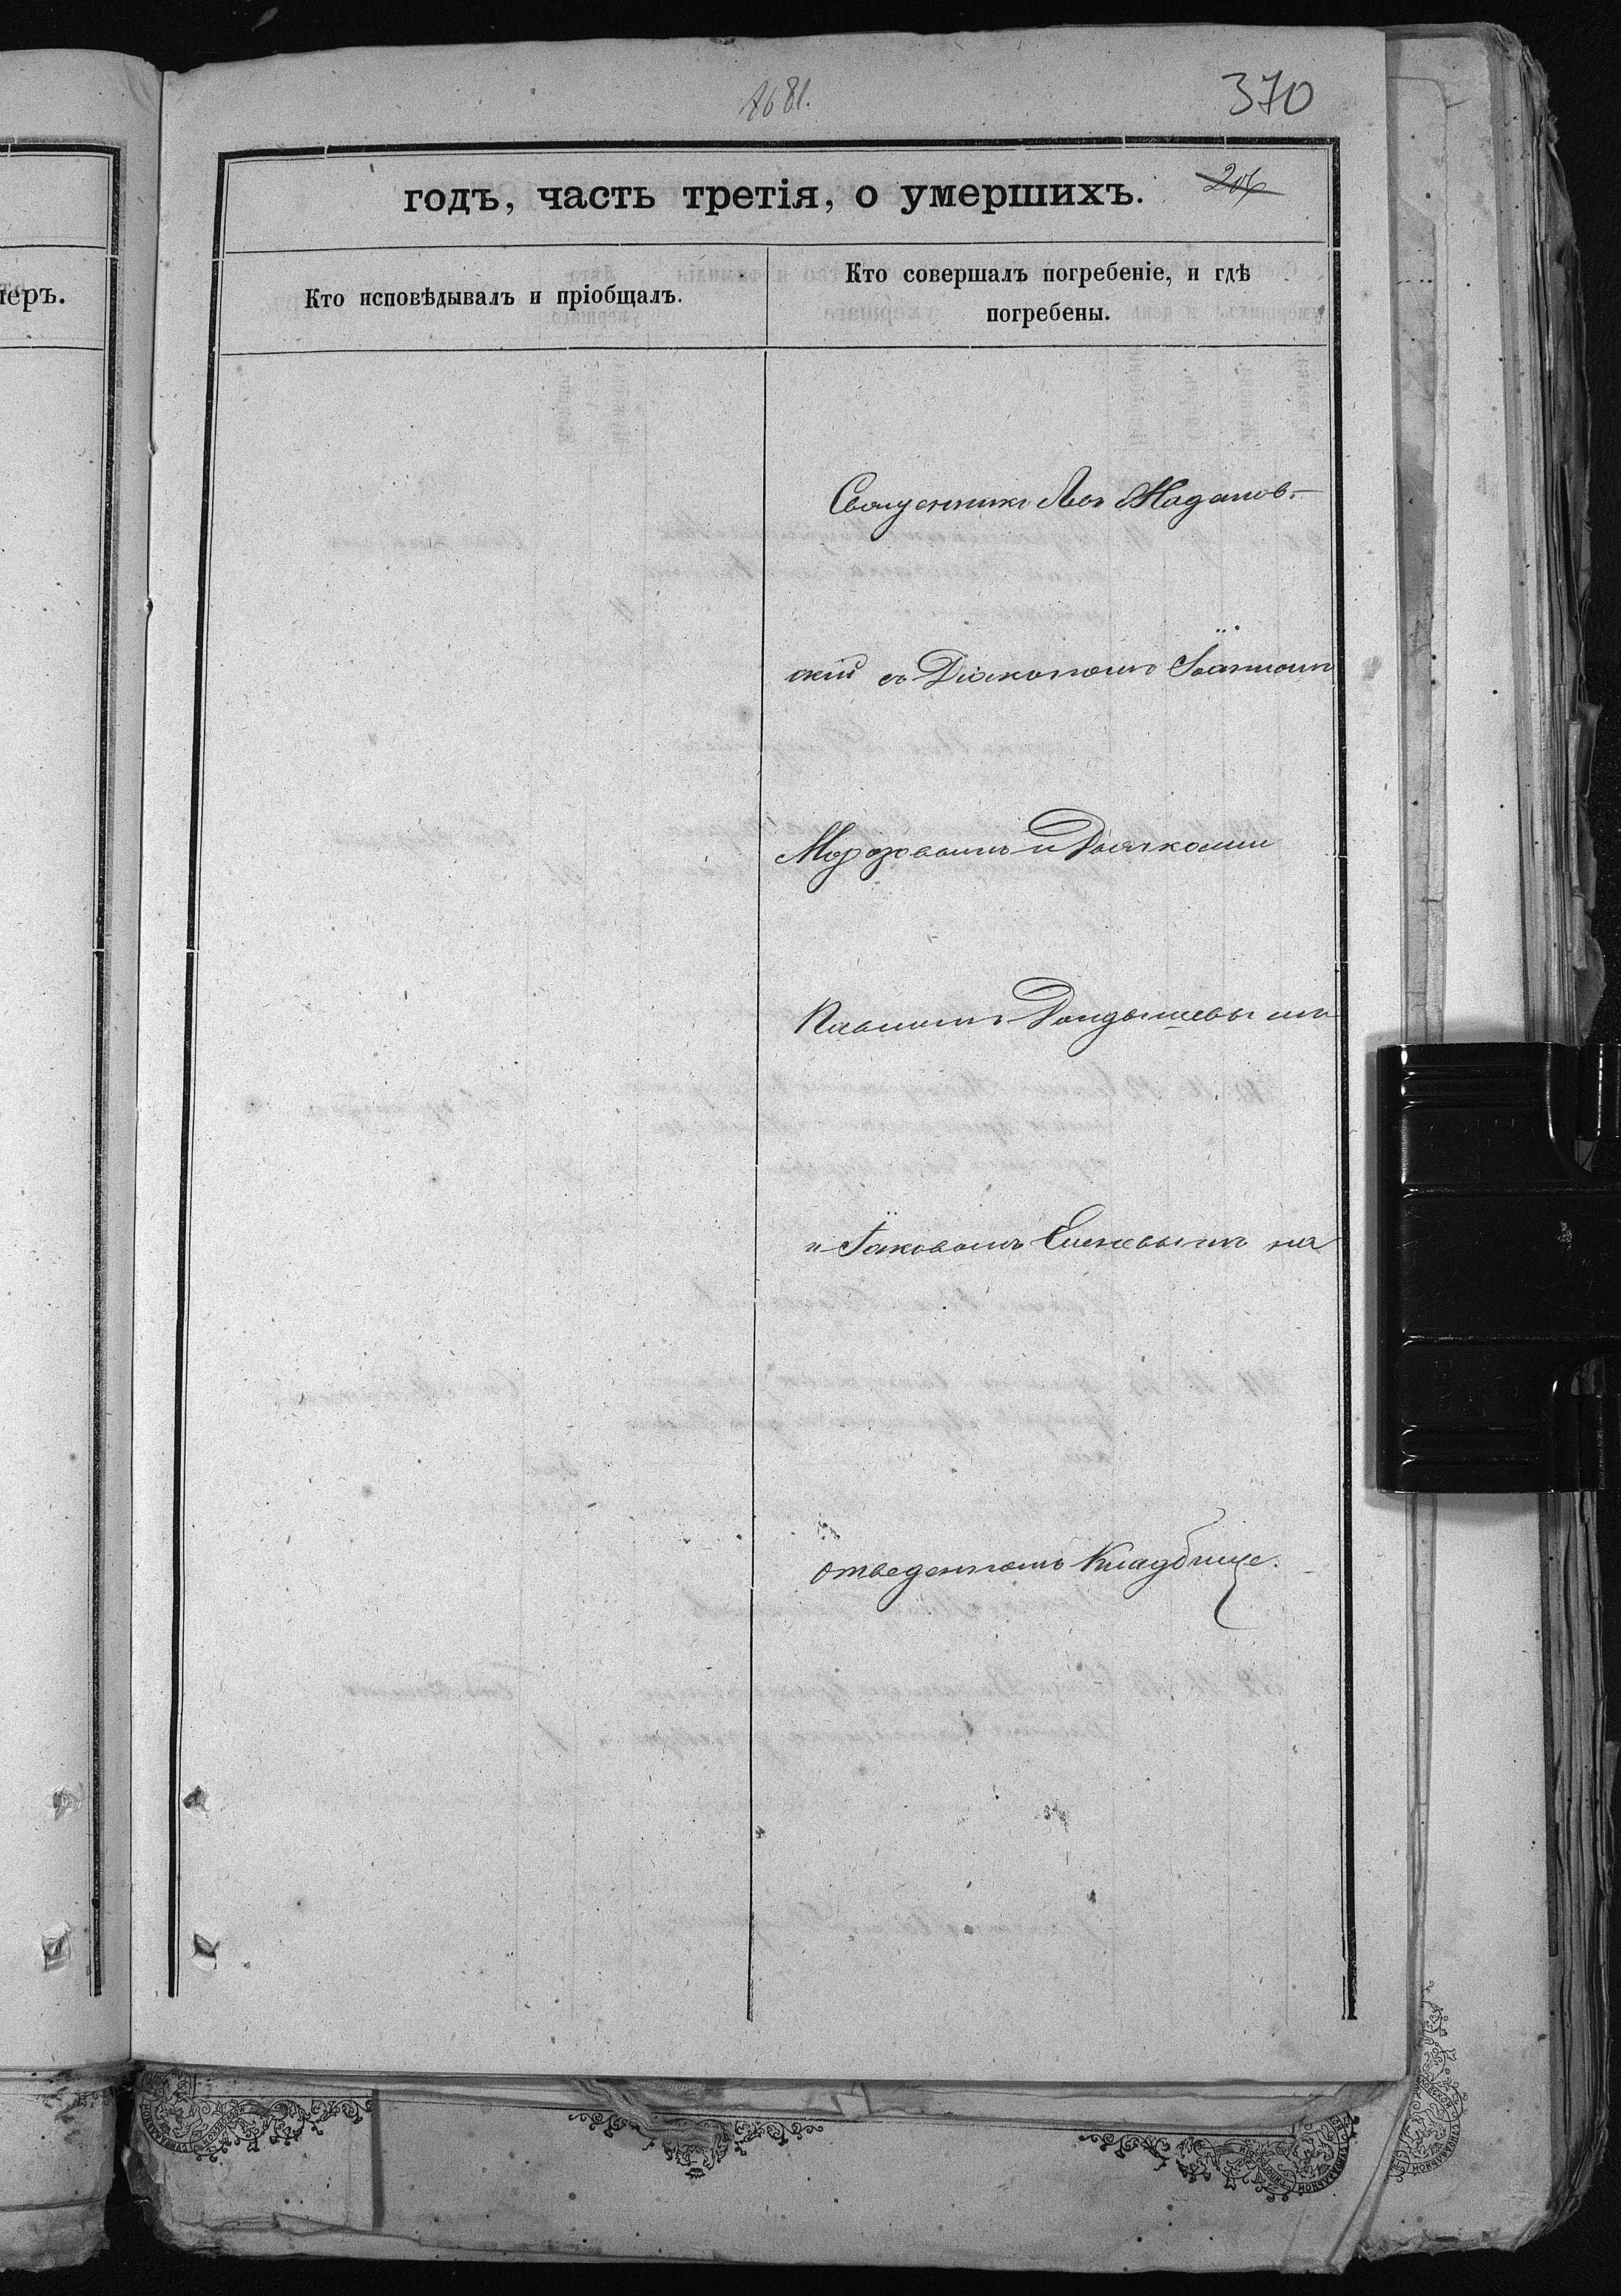 № 81.
370
годъ, часть третія, о умершихъ.
206
Кто исповѣдывалъ и пріобщалъ.
Кто совершалъ погребеніе, и гдѣ
погребены.
меръ.
Священникъ Левъ
скій съ Діакономъ Іоанномъ
Морозовымъ и Дьячками
Павломъ
и Іаковомъ Еленевымъ на
отведенномъ Кладбище.